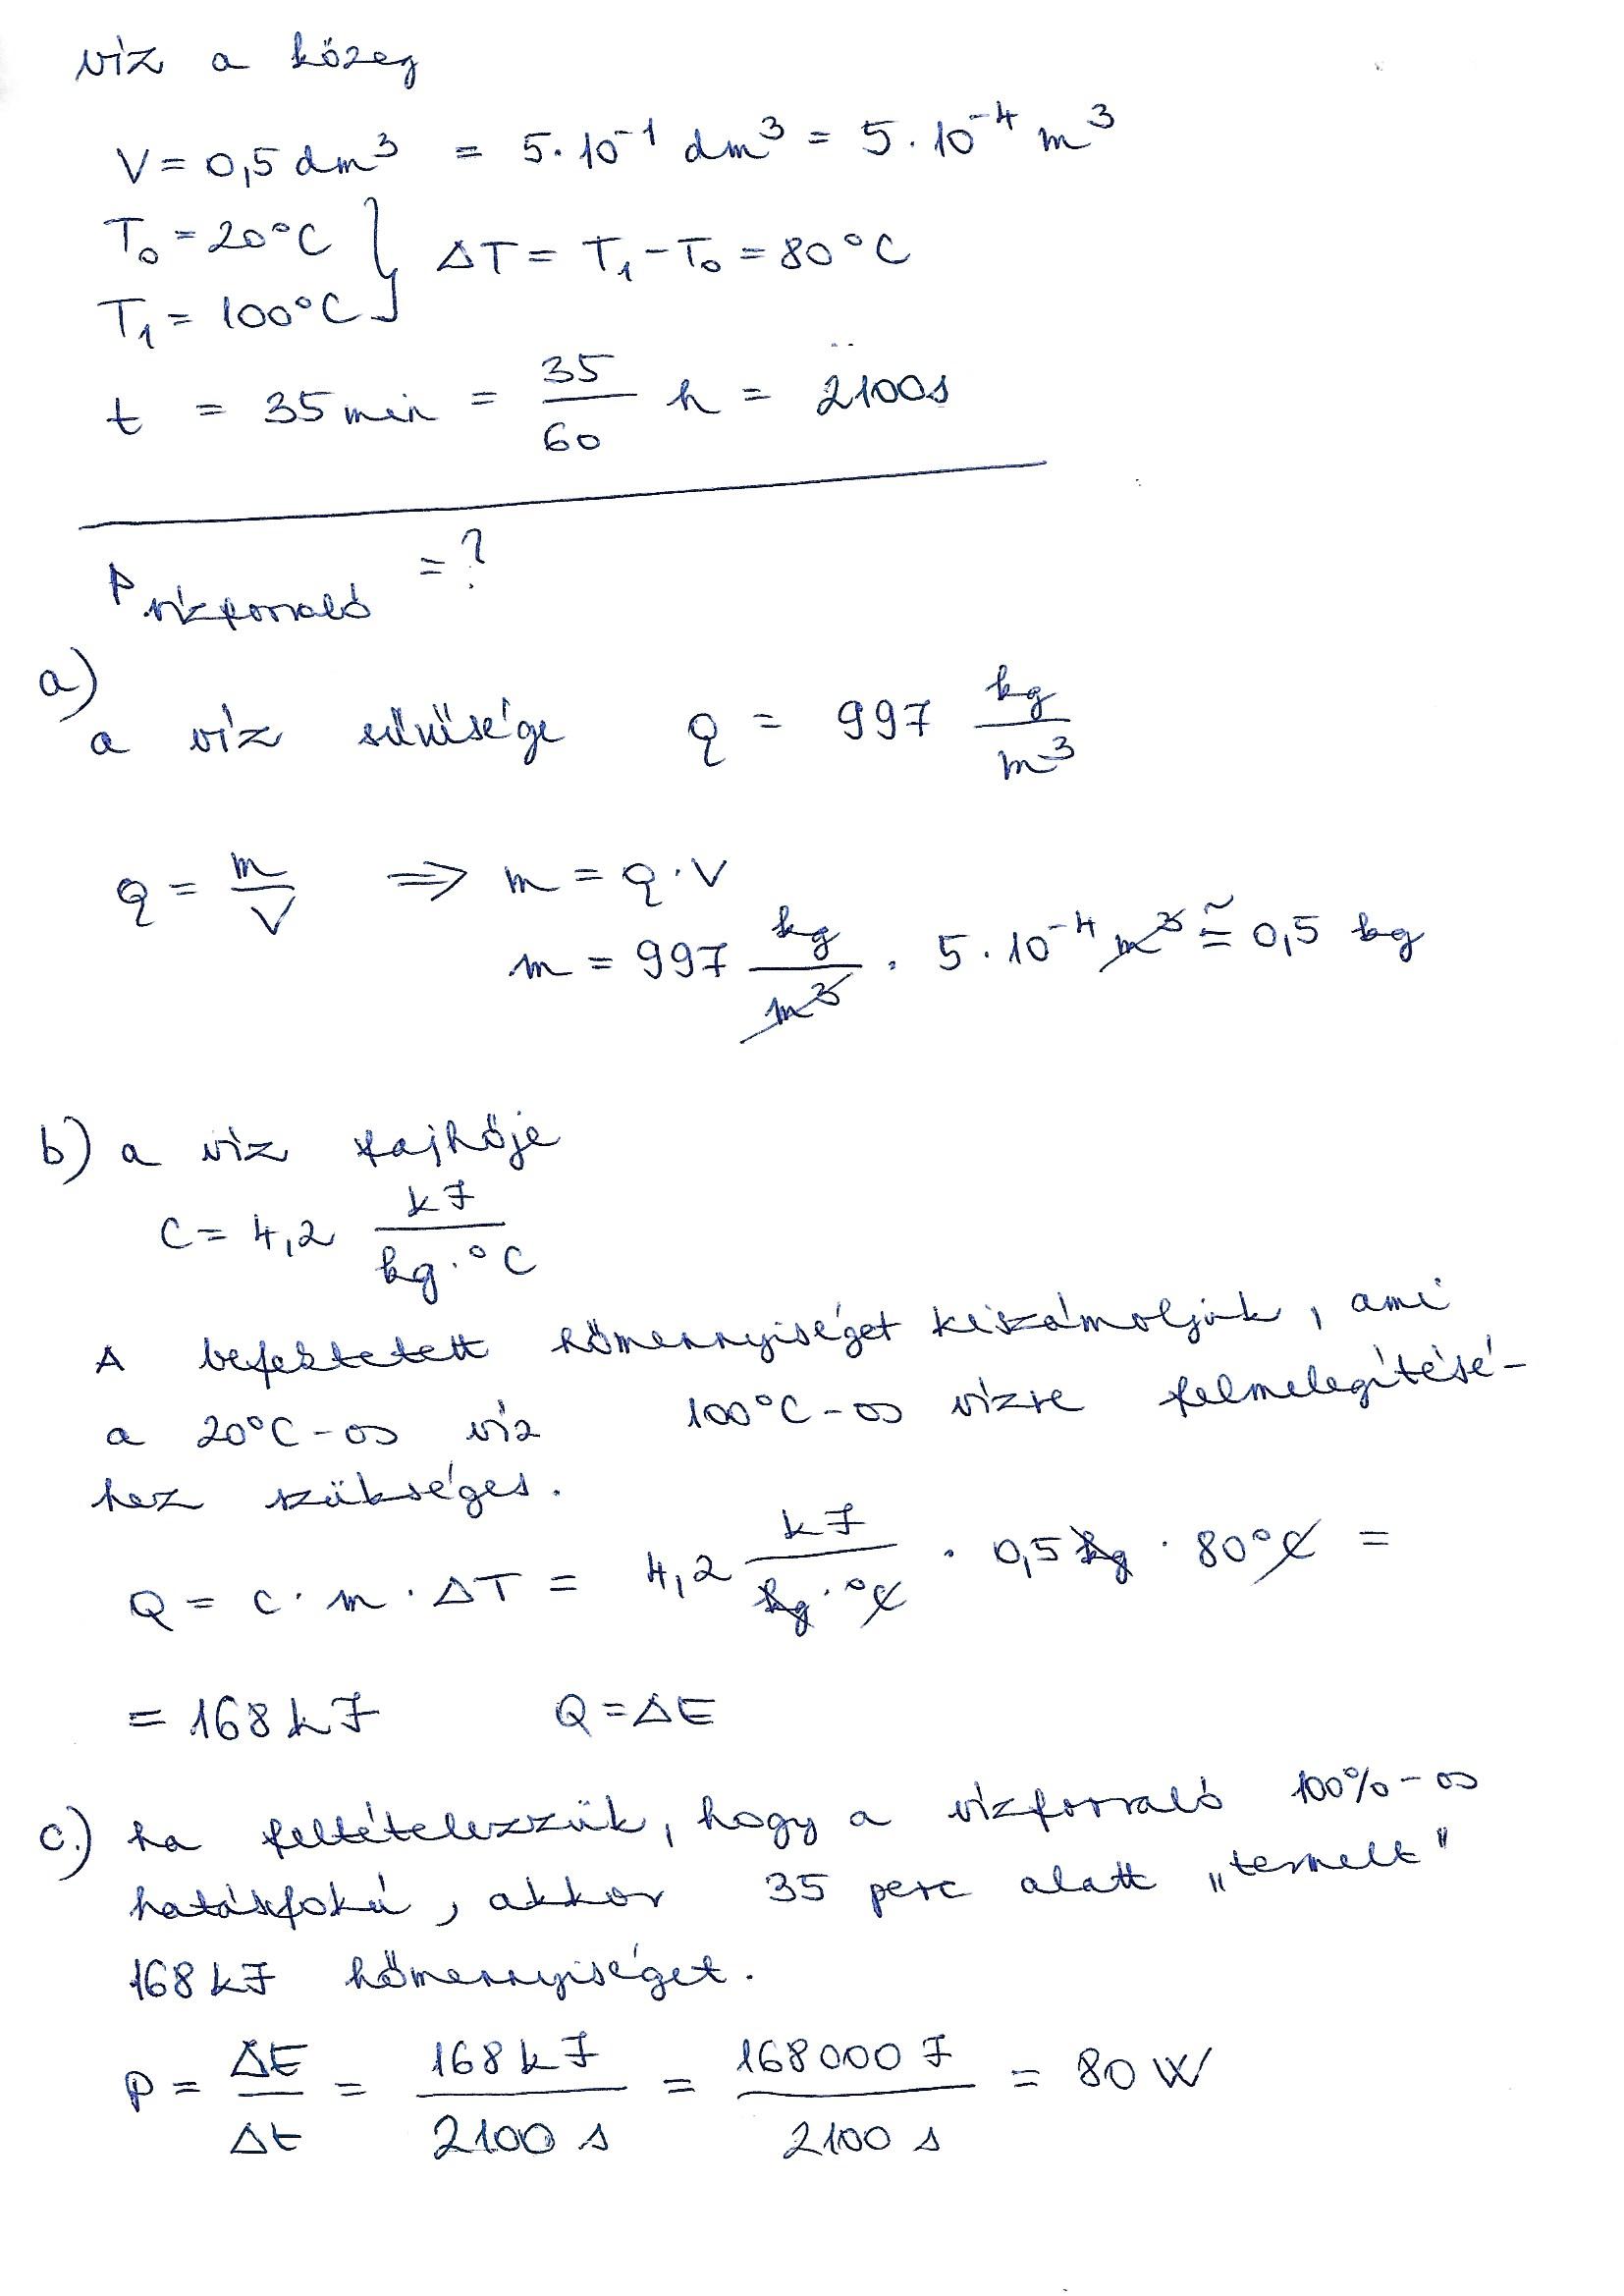 víz a közeg
V = 0,5 dm³ = 5·10⁻¹ dm³ = 5·10⁻⁴ m³
T₀ = 20°C } ΔT = T₁ - T₀ = 80°C
T₁ = 100°C
t = 35 min = 35/60 h = 2100 s
P vízforraló = ?
a)
a víz sűrűsége ρ = 997 kg/m³
ρ = m/V ⇒ m = ρ·V
m = 997 kg/m³ · 5·10⁻⁴ m³ ≅ 0,5 kg
b) a víz fajhője
C = 4,2 kJ/kg·°C
A befektetett hőmennyiséget kiszámoljuk, ami
a 20°C-os víz 100°C-os vízre felmelegítésé-
hez szükséges.
Q = c·m·ΔT = 4,2 kJ/kg·°C · 0,5 kg · 80°C =
= 168 kJ Q = ΔE
c.) ha feltételezzük, hogy a vízforraló 100%-os
hatásfokú, akkor 35 perc alatt „termelt"
168 kJ hőmennyiséget.
P = ΔE/Δt = 168 kJ/2100 s = 168000 J/2100 s = 80 W